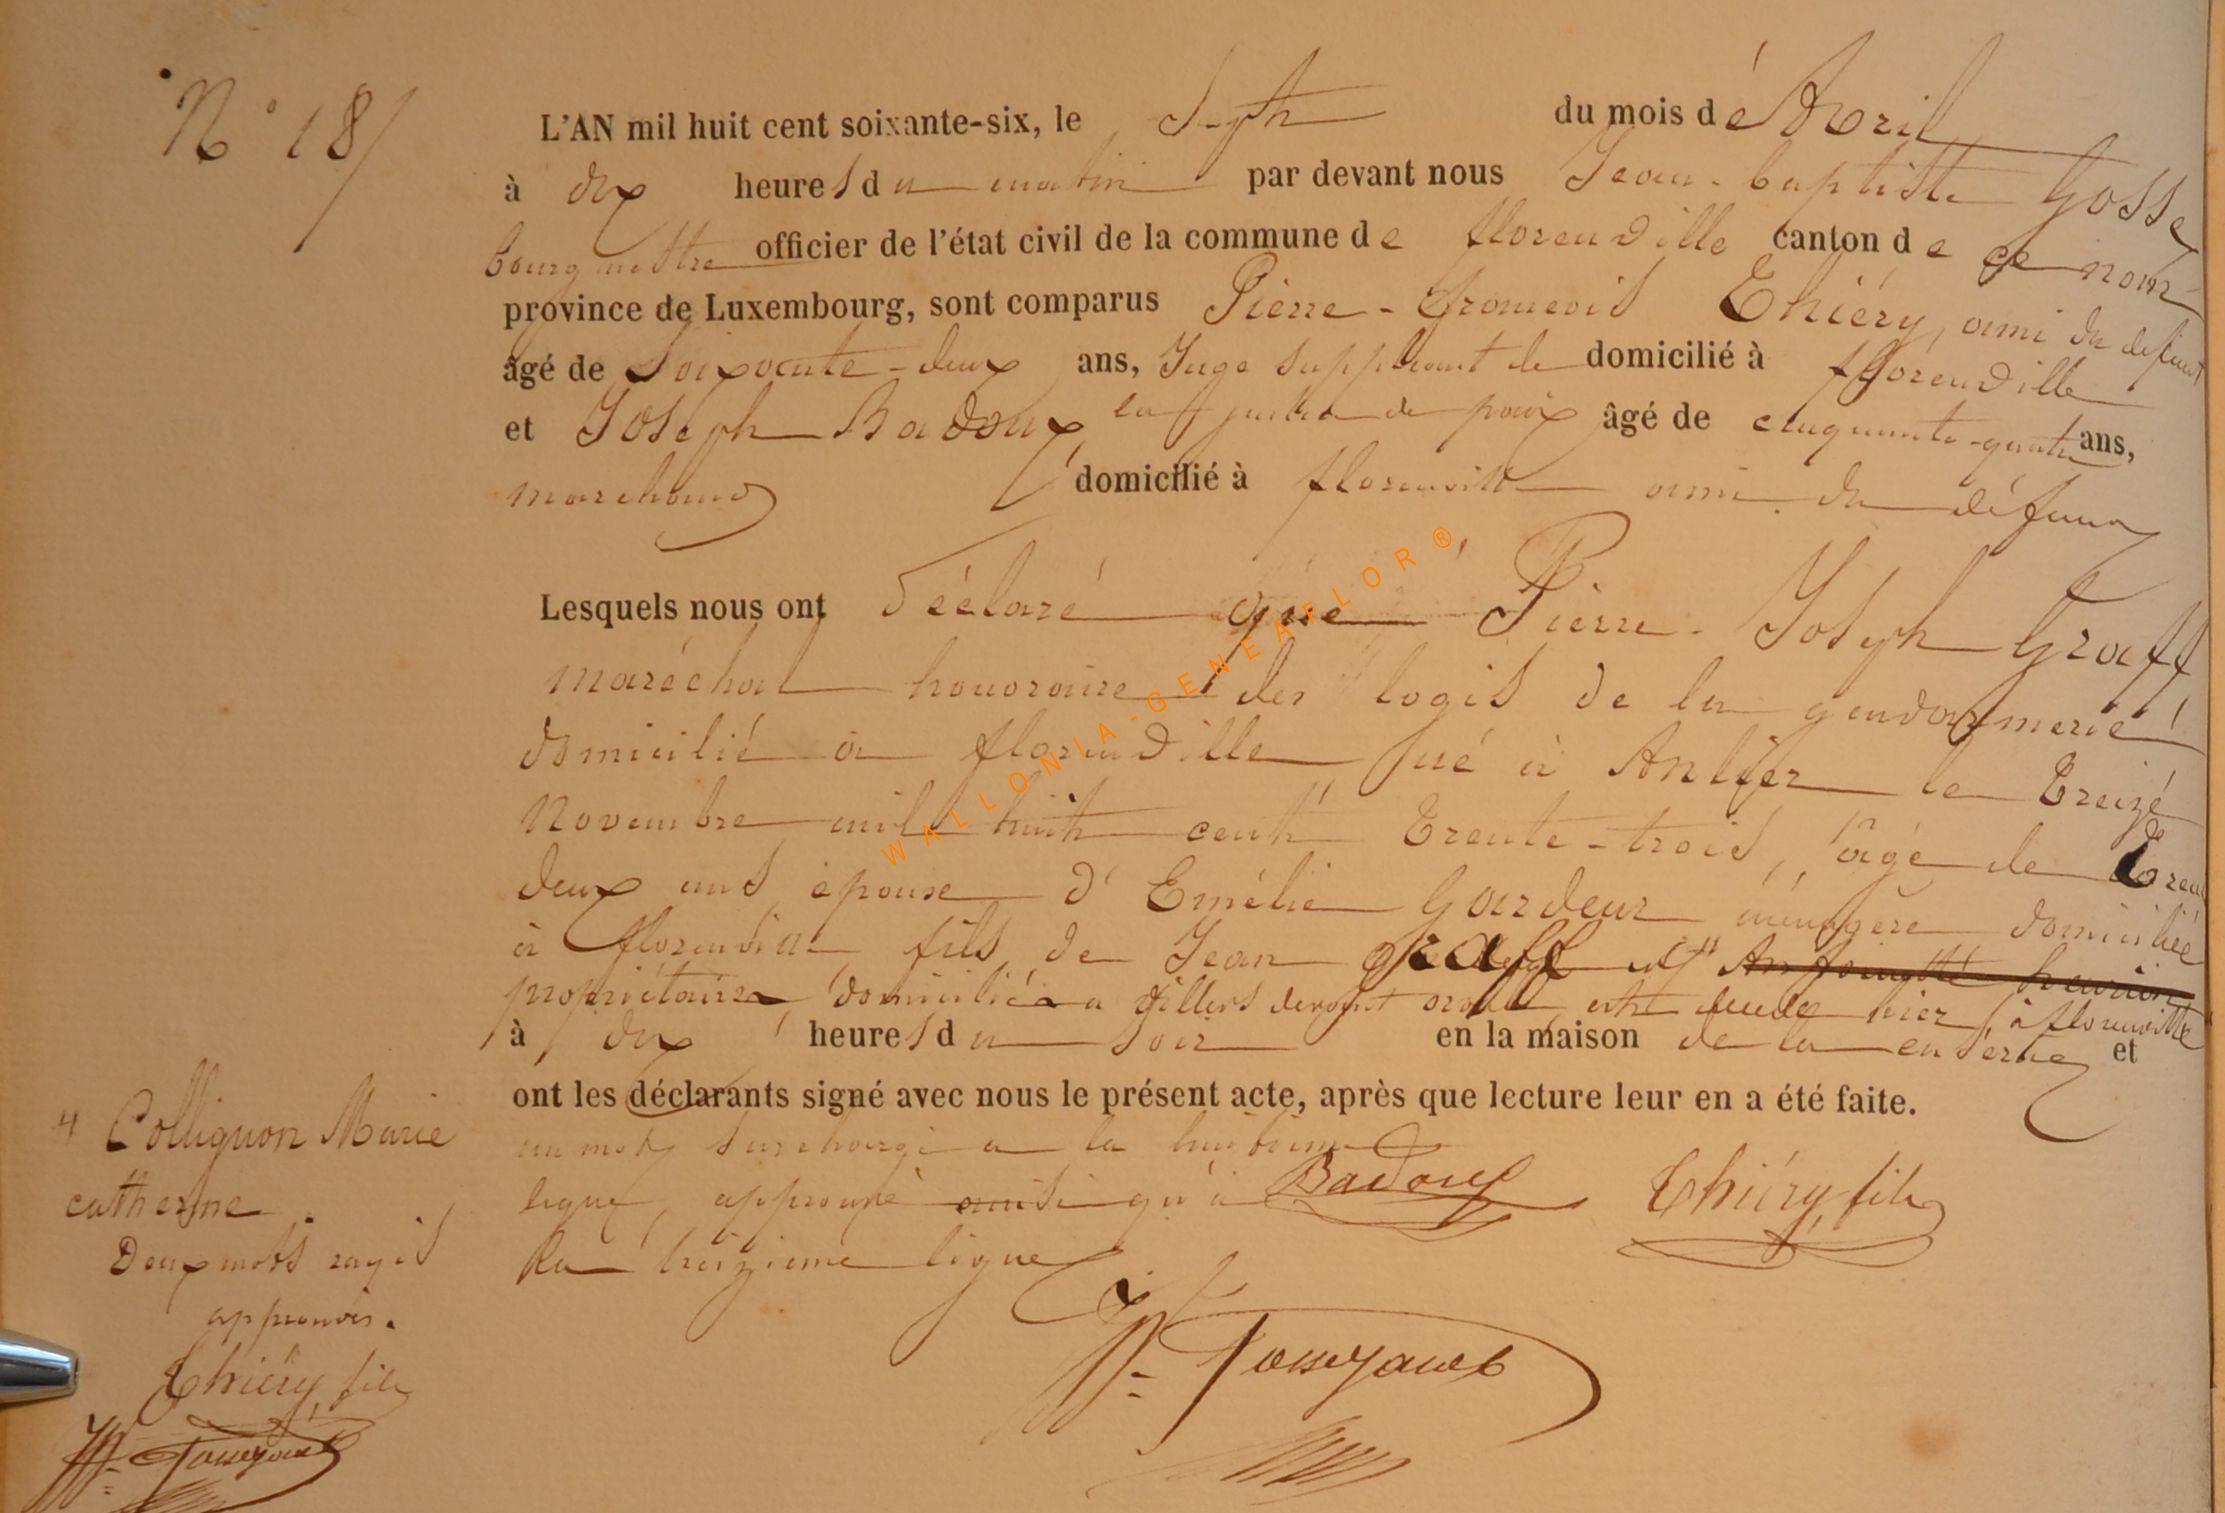 N° 18
L'AN mil huit cent soixante-six, le Sept du mois de Avril
à dix heures du matin par devant nous Jean-baptiste Gosse
bourgmettre officier de l'état civil de la commune de florenville canton de ce nom
province de Luxembourg, sont comparus Pierre-francois Thiéry, ami du défunt
âgé de Soixante-deux ans, Juge suppleant de domicilié à florenville
et Joseph Badoux la justice de paix âgé de cinquante-quatre ans,
marchand domicilié à florenville ami du défunt
Lesquels nous ont déclaré que Pierre-Joseph Graff
maréchal honoraire des logis de la gendarmerie
domicilié à florenville né à Anlier le Treize
Novembre mil huit cent Trente-trois, âgé de Trente
deux ans épouse d'Emélie Gardeur ménagère domiciliée
à florenville fils de Jean graff et "
propriétaires, domiciliés a Villers devant orval, est décédé hier, à florenville
à dix heures du soir en la maison de la caserne et
ont les déclarants signé avec nous le présent acte, après que lecture leur en a été faite.
un mot surchargé a la huitième
ligne, approuvé ainsi qu'à
la treizieme ligne
Badoux
Thiéry fils
" Collignon Marie
catherine.
Deux mots rayés
approuvés.
Thiéry fils
WALLONIA-GENEAFLOR®